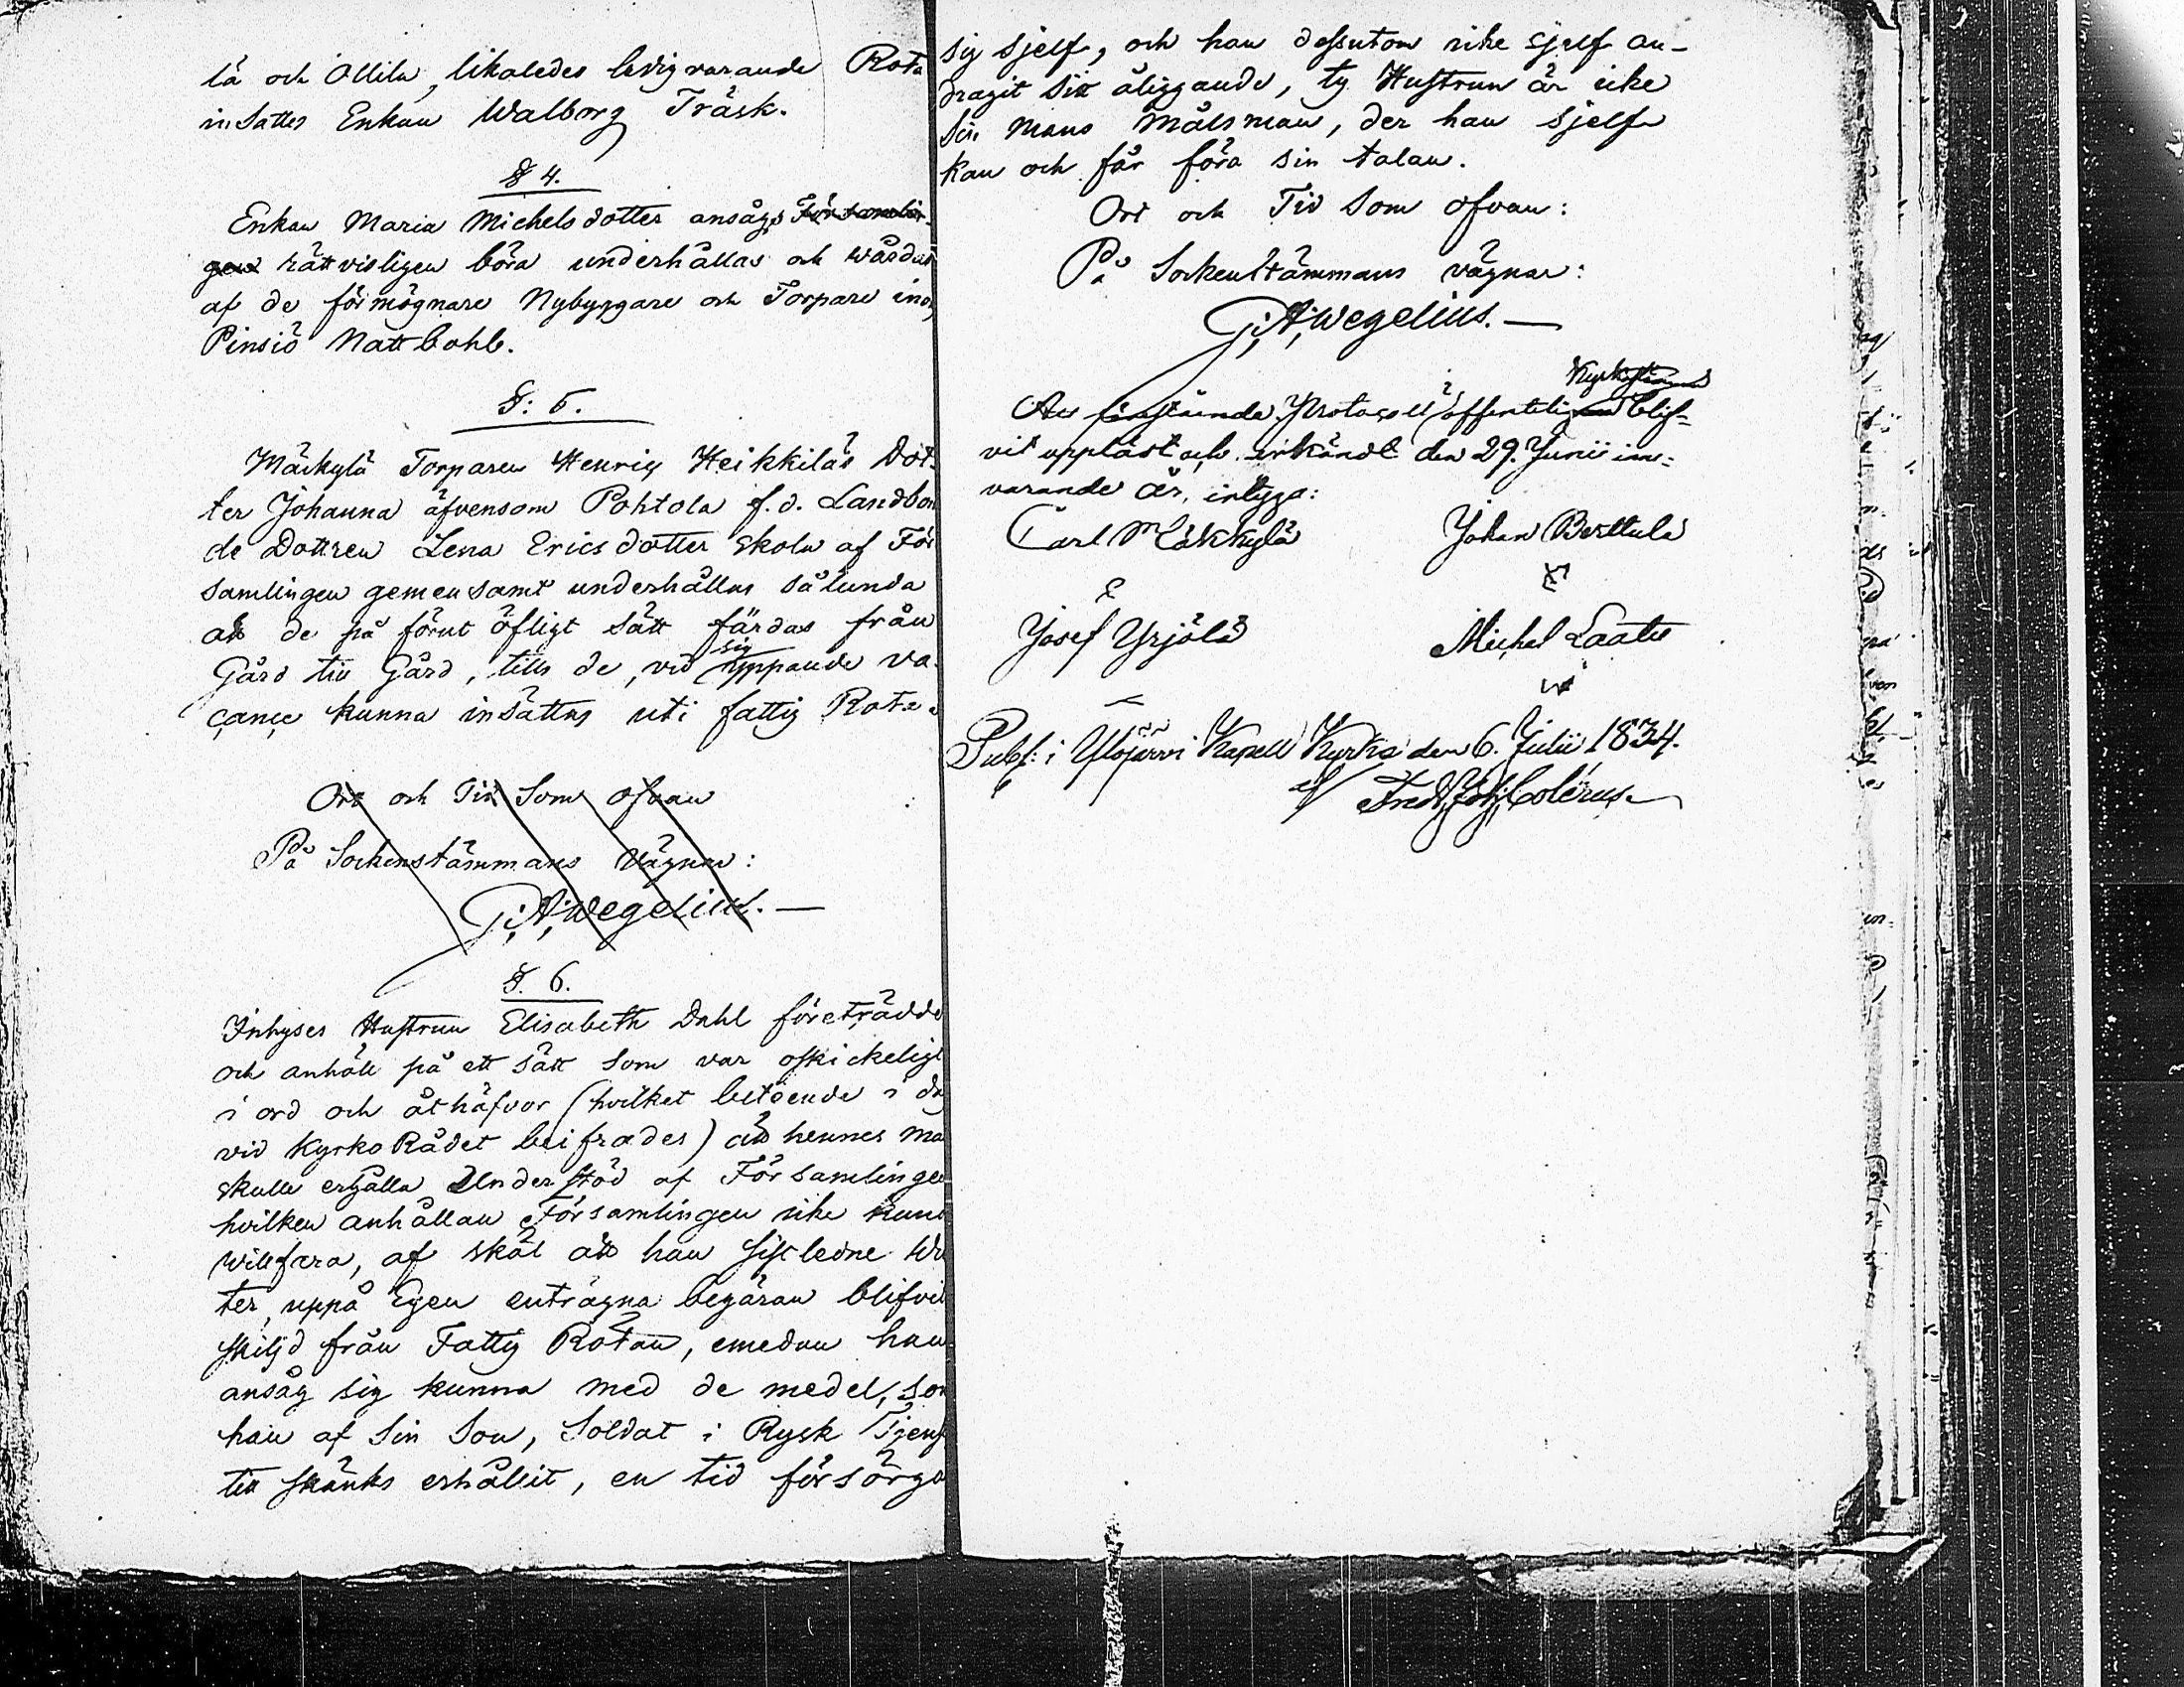 lä och Ollila, likaledes ledigvarande Rota
insattes Enkan Walborg Träsk.
§ 4.
Enkan Maria Michelsdotter ansågs Församlin-
gen rättvisligen böra underhållas och wårdas
af de förmögnare Nybyggare och Torpare inom
Pinsiö Nattbohl.
§: 5.
Mäkkylä Torparen Henric Heikkiläs Dot-
ter Johanna äfvensom Pohtola f. d. Landbon
de Dottren Lena Ericsdotter skola af För
samlingen gemensamt underhållas sålunda
att de på förut öfligt sätt färdas från
Gård till Gård, tills de, vid sig yppande va-
cance kunna insättas uti fattig Rote.
Ort och Tid Som ofvan
På Sockenstämmans vägnar:
G. A. Wegelius. —
§. 6.
Inhyses Hustrun Elisabeth Dahl företrädde
och anhöll på ett sätt som var oskickeligt
i ord och åthäfvor (hvilket beteende i dag
vid Kyrko Rådet beifrades) att hennes man
skulle erhålla Understöd af Församlingen
hvilken anhållan Församlingen icke kunde
willfara, af skäl att han sistledne Win
ter, uppå Egen enträgna begäran blifvit
skiljd från Fattig Rotan, emedan han
ansåg sig kunna med de medel, som
han af Sin Son, Soldat i Rysk Tjenst
till skänks erhållit, en tid försörga
sig sjelf, och han dessutom icke sjelf an-
dragit sitt åliggande, ty Hustrun är icke
Sin Mans Målsman, der han sjelf
kan och får föra sin talan.
Ort och Tid Som ofvan:
På Sockenstämmans vägnar:
G. A. Wegelius. —
Kyrkostämma
Att förestående Protocoll offenteligen blif-
vit uppläst och erkändt den 29. Junii inne-
varande år, intyga:
Carl Mäkkylä Johan Berttula
Josef Yrjölä Michel Laati
Publ: i Ylöjärvi Kapell Kyrka den 6. Julii 1834.
af Fredr. Joh. Colérus